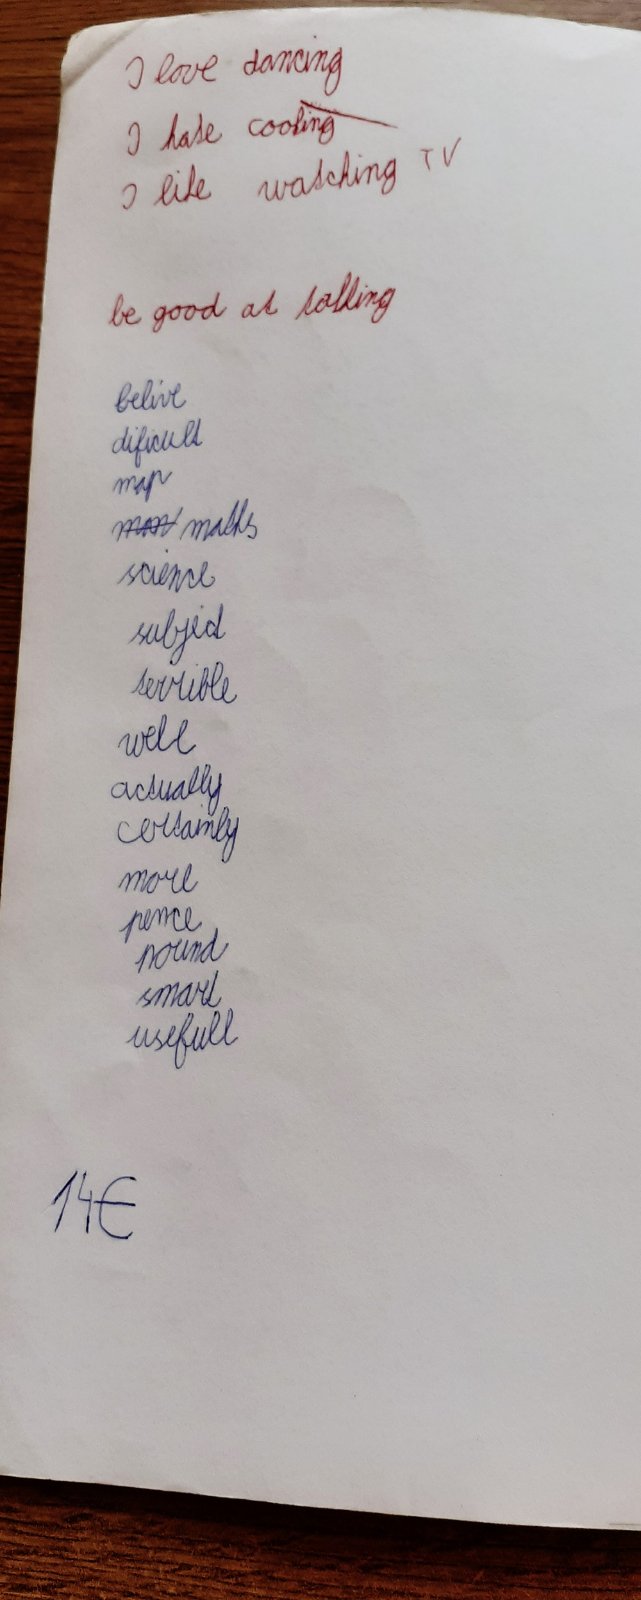 I love dancing
I hate cooking
I like watching TV
be good at talking
belive
dificult
map
maths
science
subject
terrible
well
actually
certainly
more
pence
pound
smart
usefull
14€